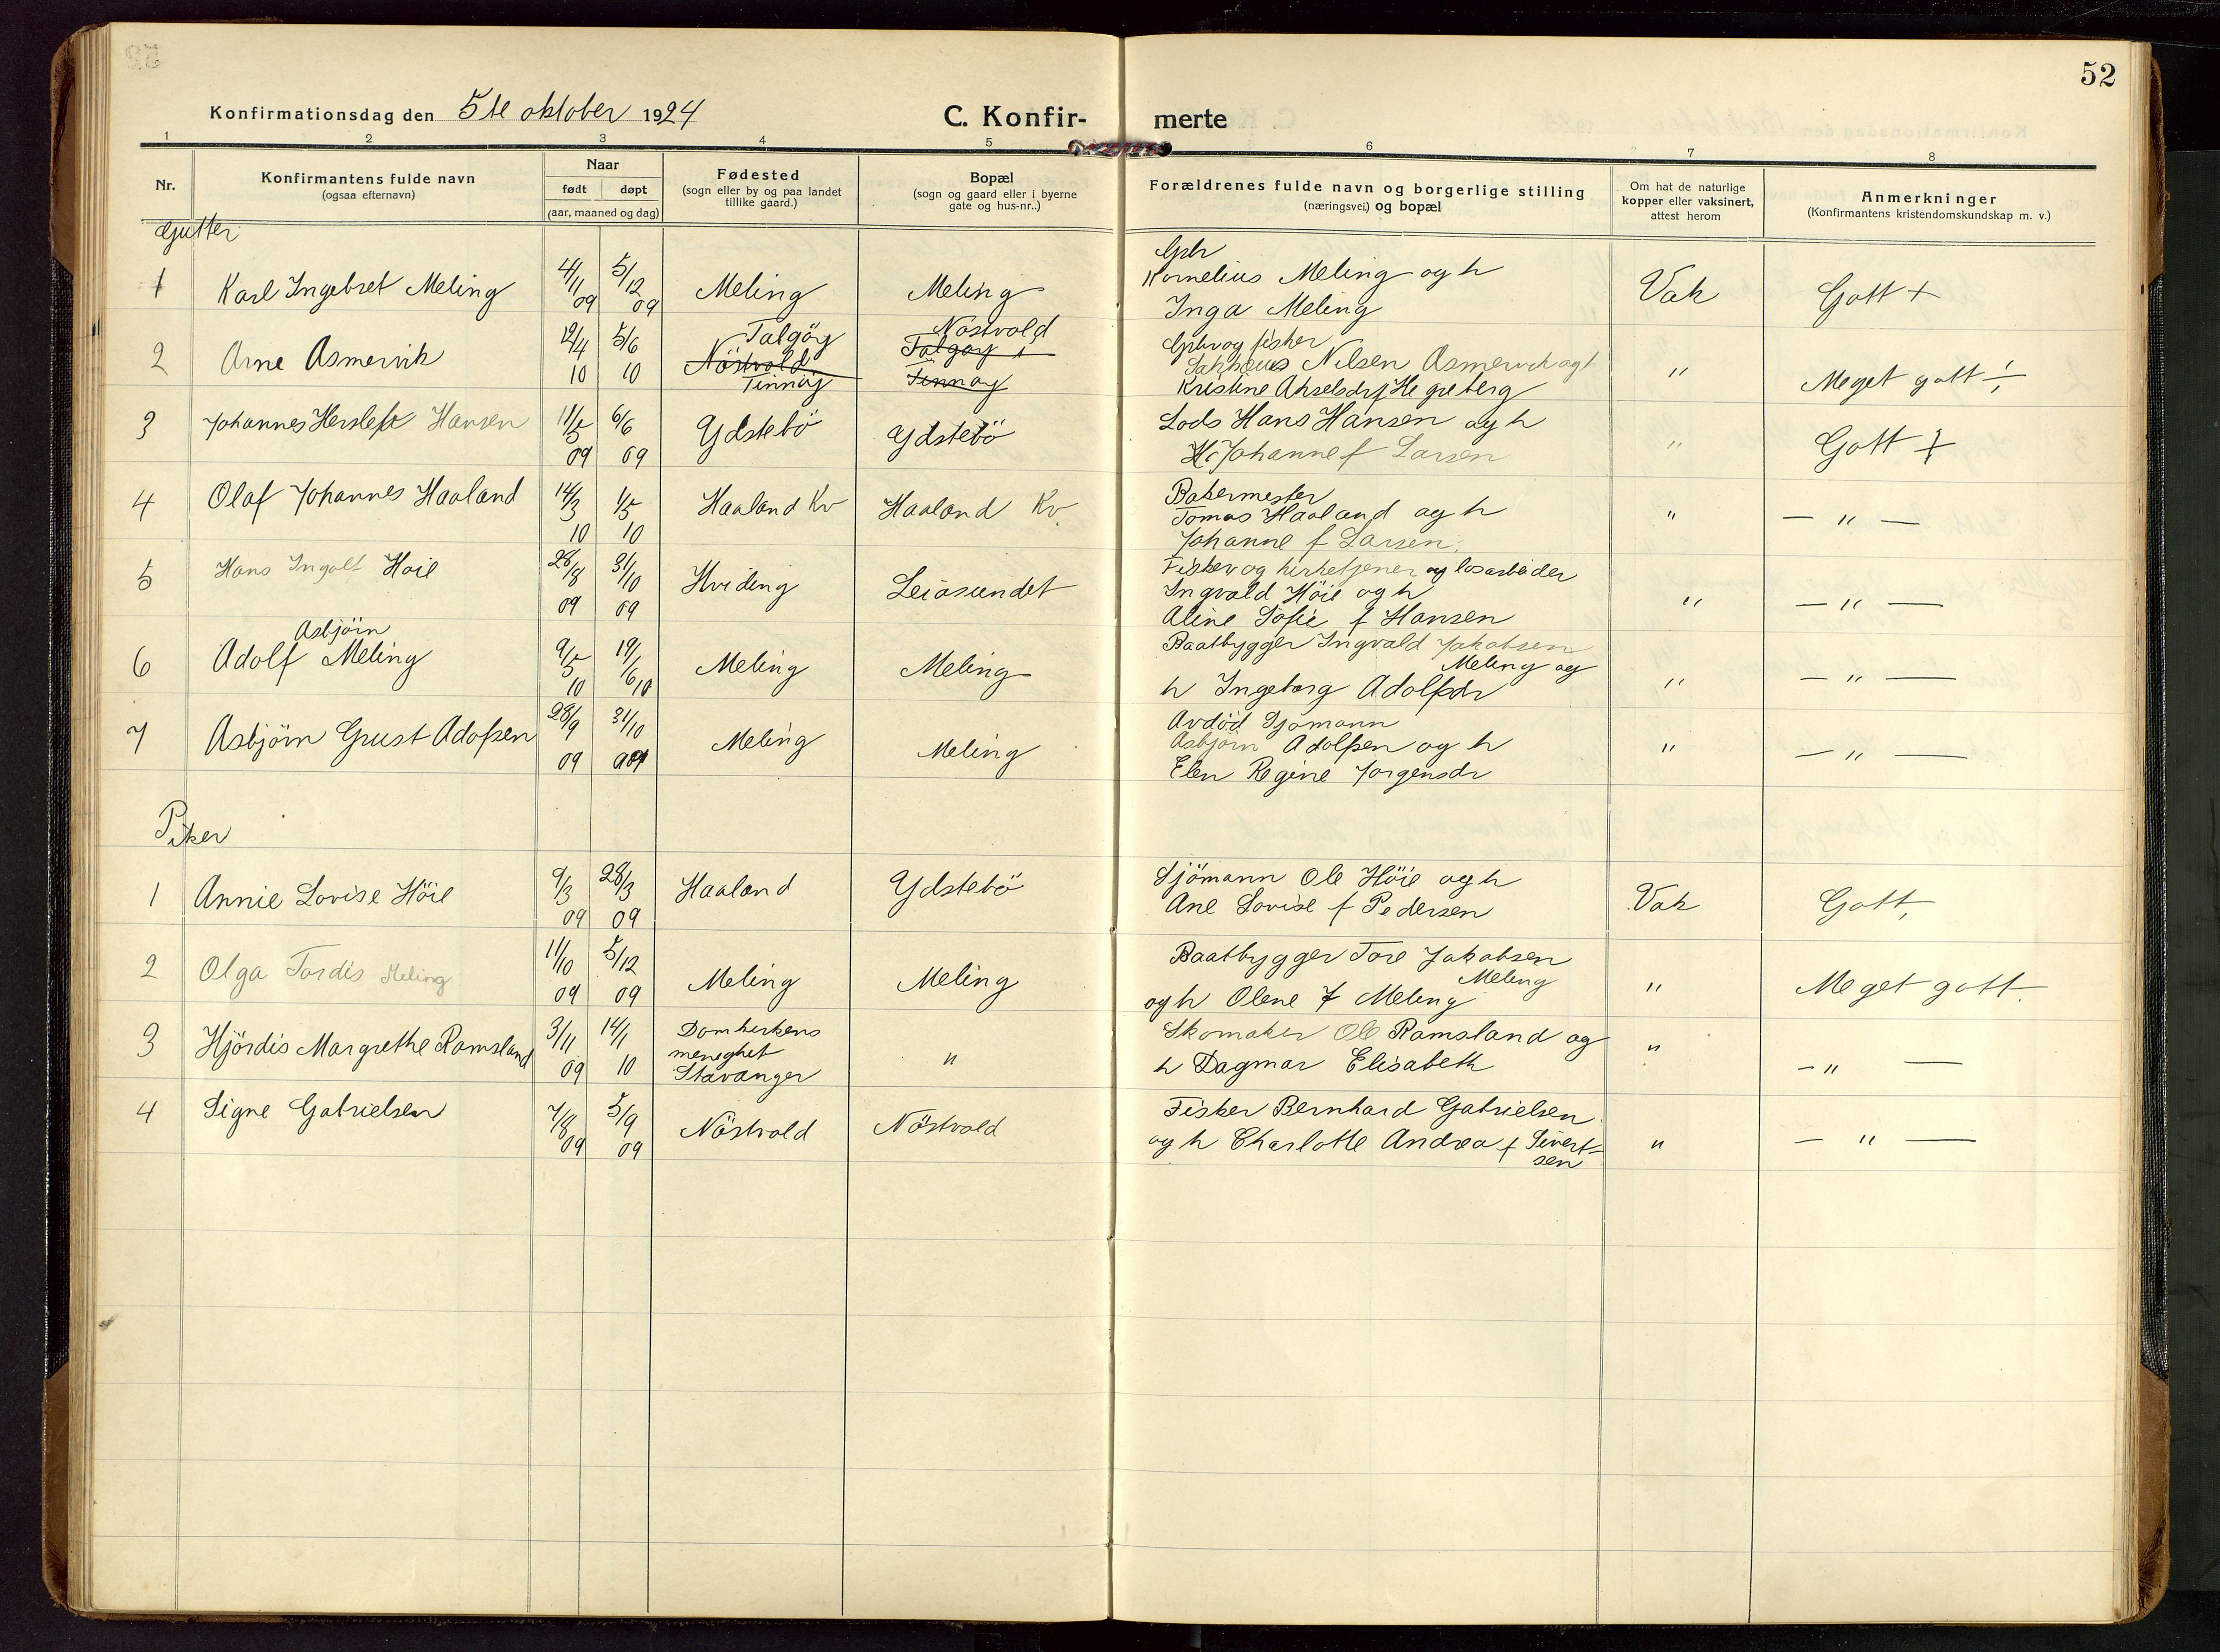 52
Konfirmationsdag den 5te oktober 1924
C. Konfir-
merte
1 2 3 4 5 6 7 8
Nr.
Konfirmantens fulde navn
(ogsaa efternavn)
Naar
født døpt
(aar, maaned og dag)
Fødested
(sogn eller by og paa landet
tillike gaard.)
Bopæl
(sogn og gaard eller i byerne
gate og hus-nr..)
Forældrenes fulde navn og borgerlige stilling
(næringsvei) og bopæl
Om hat de naturlige
kopper eller vaksinert,
attest herom
Anmerkninger
(Konfirmantens kristendomskundskap m. v.)
Gutter
1 Karl Ingebret Meling 4/11 09 5/12 09 Meling Meling
Gbr
Kornelius Meling og h
Inga Meling
Vak Gott +
2 Arne Asmervik 12/4 10 5/6 10
Talgöy
Nöstvold
Finnöy
Nöstvold
Talgøy i
Finnøy
Gbr og fisker
Nilsen Asmervik og h
Kristine Akselsdr f Hegreberg
" Meget gott ÷
3 Johannes Herslef Hansen 11/5 09 6/6 09 Ydstebö Ydstebö
Lods Hans Hansen og h
Johanne f Larsen
" Gott +
4 Olaf Johannes Haaland 14/3 10 1/5 10 Haaland Kv Haaland Kv
Bakermester
Tomas Haaland og h
Johanne f Larsen
" — " —
5 Hans Ingolf Høie 28/8 09 31/10 09 Hviding Leiasundet
Fisker og kirketjener og løsarbeider
Ingvald Höie og h
Aline Sofie f Hansen
" — " —
Asbjörn
6 Adolf Meling 9/5 10 19/6 10 Meling Meling
Baatbygger Ingvald Jakobsen
Meling og
h Ingeborg Adolfsdr
" — " —
7 Asbjörn Gust Adofsen 28/9 09 31/10 09 Meling Meling
Avdöd Sjömann
Asbjørn Adolfsen og h
Elen Regine Jørgensdr
" — " —
Piker
1 Annie Lovise Höie 9/3 09 28/3 09 Haaland Ydstebö
Sjömann Ole Höie og h
Ane Lovise f Pedersen
Vak Gott,
2 Olga Tordis Meling 11/10 09 5/12 09 Meling Meling
Baatbygger Tore Jakobsen
Meling
og h Olene f Meling
" Meget gott.
3 Hjördis Margrethe Ramsland 3/11 09 14/1 10
Domkirkens
meneghet
Stavanger
"
Skomaker Ole Ramsland og
h Dagmar Elisabeth
" — " —
4 Signe Gabrielsen 7/8 09 5/9 09 Nöstvold Nöstvold
Fisker Bernhard Gabrielsen
og h Charlotte Andrea f Sivert-
sen
" — " —